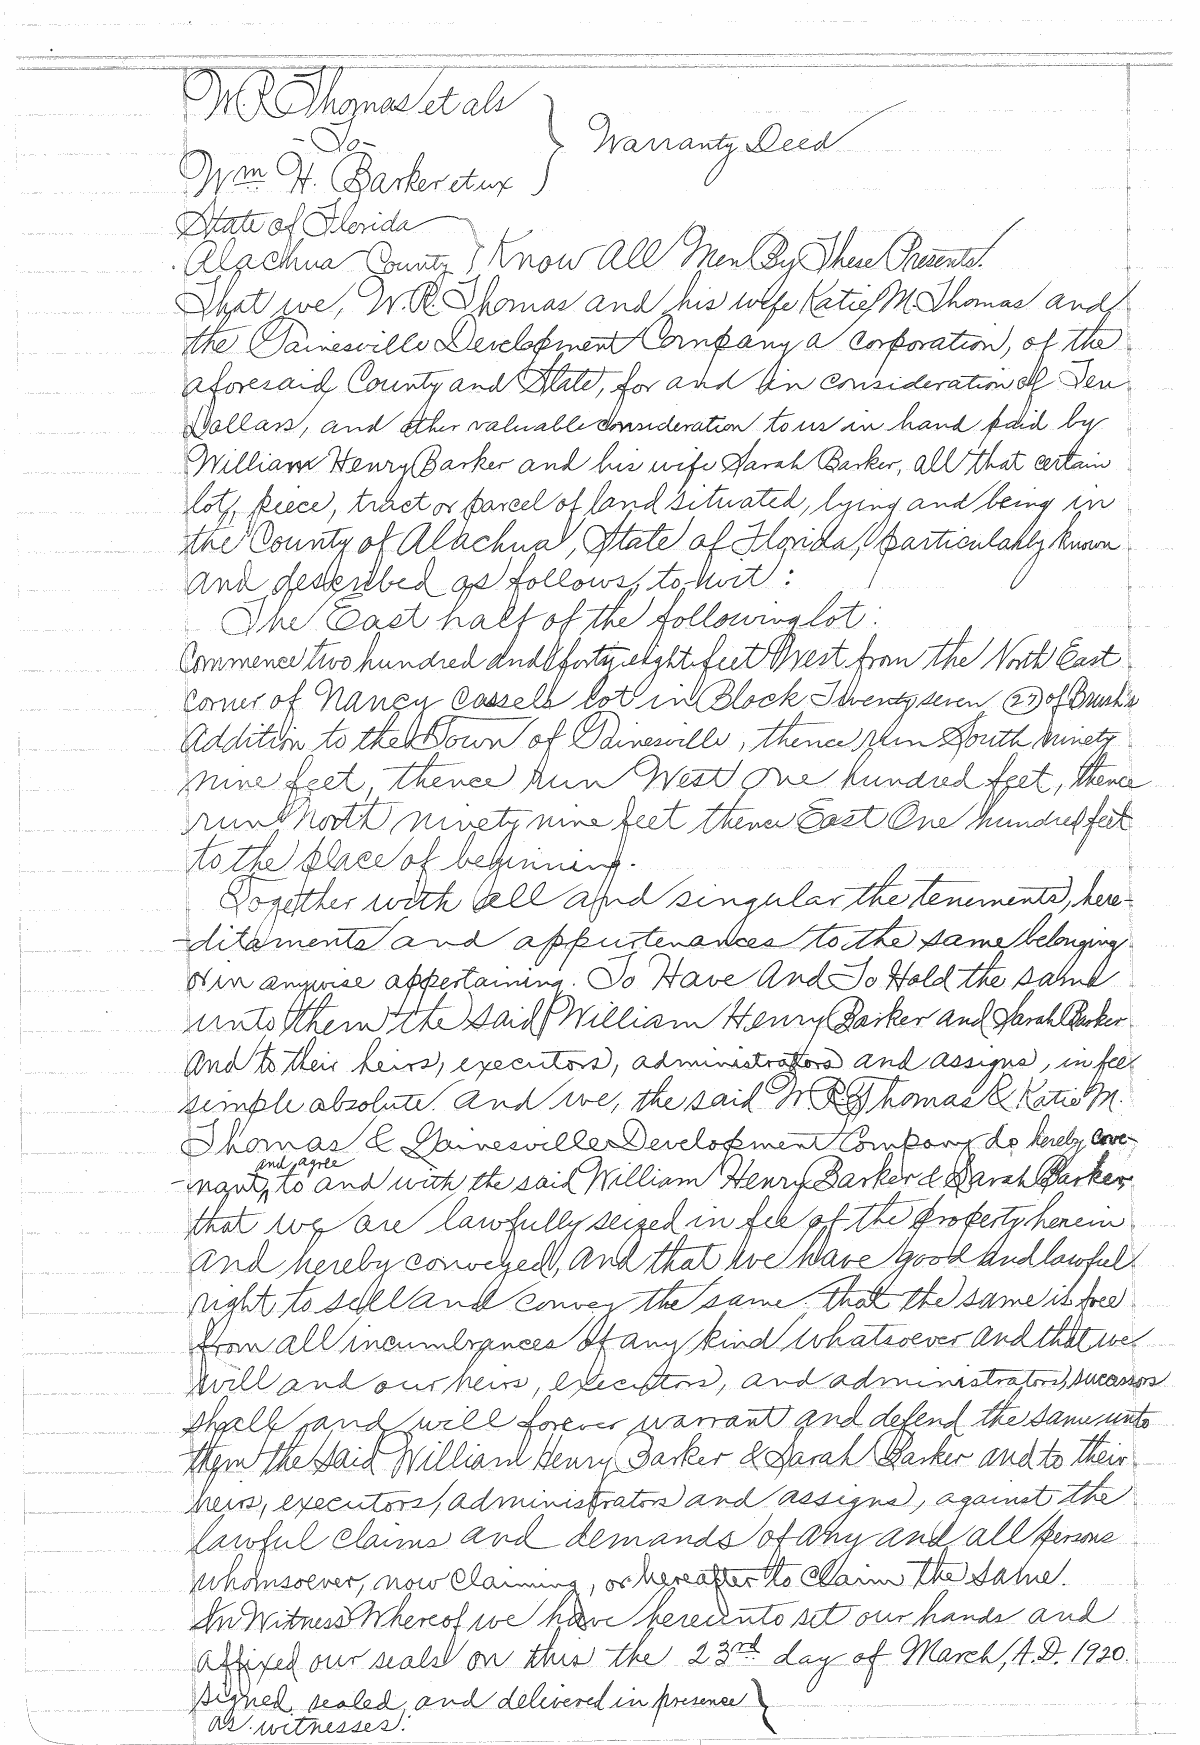 W.R. Thomas et als
-To-
Warranty Deed
Wm. H. Barker et ux
State of Florida
Alachua County Know All Men By These Presents!
That we, W.R. Thomas and his wife Katie M. Thomas and
the Gainesville Development Company a corporation, of the
aforesaid County and State, for and in consideration of Ten
Dollars, and other valuable consideration to us in hand paid by
William Henry Barker and his wife Sarah Barker, all that certain
lot, piece, tract or parcel of land situated, lying and being in
the County of Alachua, State of Florida, particularly known
and described as follows, to wit:
The East half of the following lot:
Commence two hundred and forty eight feet West from the North East
corner of Nancy Cassels lot in Block Twenty seven (27) of Brush's
Addition to the Town of Gainesville, thence run South ninety
nine feet, thence run West One hundred feet, thence
run North ninety nine feet thence East One hundred feet
to the place of beginning.
Together with all and singular the tenements, here-
-ditaments and appurtenances to the same belonging
or in anywise appertaining. To Have And To Hold the same
unto them the said William Henry Barker and Sarah Barker
and to their heirs, executors, administrators and assigns, in fee
simple absolute. And we, the said W.R. Thomas & Katie M.
Thomas & Gainesville Development Company do hereby cove-
and agree
-nant, to and with the said William Henry Barker & Sarah Barker
that we are lawfully seized in fee of the property herein
and hereby conveyed, and that we have good and lawful
right to sell and convey the same that the same is free
from all incumbrances of any kind whatsoever and that we
will and our heirs, executors, and administrators, successors
shall and will forever warrant and defend the same unto
them the said William Henry Barker & Sarah Barker and to their
heirs, executors, administrators and assigns, against the
lawful claims and demands of any and all persons
whomsoever, now claiming, or hereafter to claim the same.
In Witness Whereof we have hereunto set our hands and
affixed our seals on this the 23rd day of March, A.D. 1920.
Signed, sealed, and delivered in presence
as witnesses: